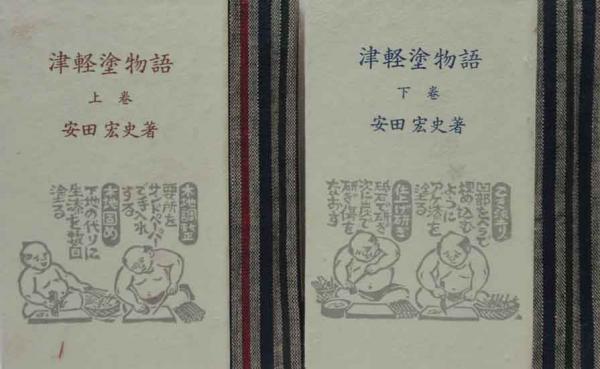 津軽塗物語
上巻
安田 宏史著
木地調整
要所を
サンドペーパー
で手入れ
する
木地固め
下地の代りに
生漆を数回
塗る
津軽塗物語
下巻
安田 宏史著
凹部を
埋め込む
ように
塗る
仕上げ研ぎ
砥石で研ぎ
次に炭で
研ぎ傷を
なおす